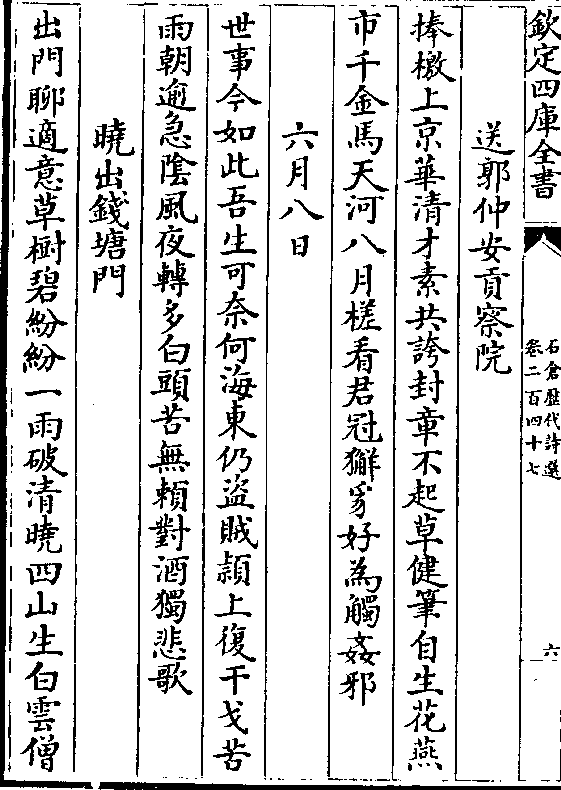 欽定四庫全書
石倉歷代詩選
卷二百四十七
六
送郭仲安貢察院
捧檄上京華清才素共誇封章不起草健筆自生花燕
市千金馬天河八月槎看君冠獬豸好為觸姦邪
六月八日
世事今如此吾生可奈何海東仍盜賊潁上復干戈苦
雨朝逾急陰風夜轉多白頭苦無賴對酒獨悲歌
曉出錢塘門
出門聊適意草樹碧紛紛一雨破清曉四山生白雲僧